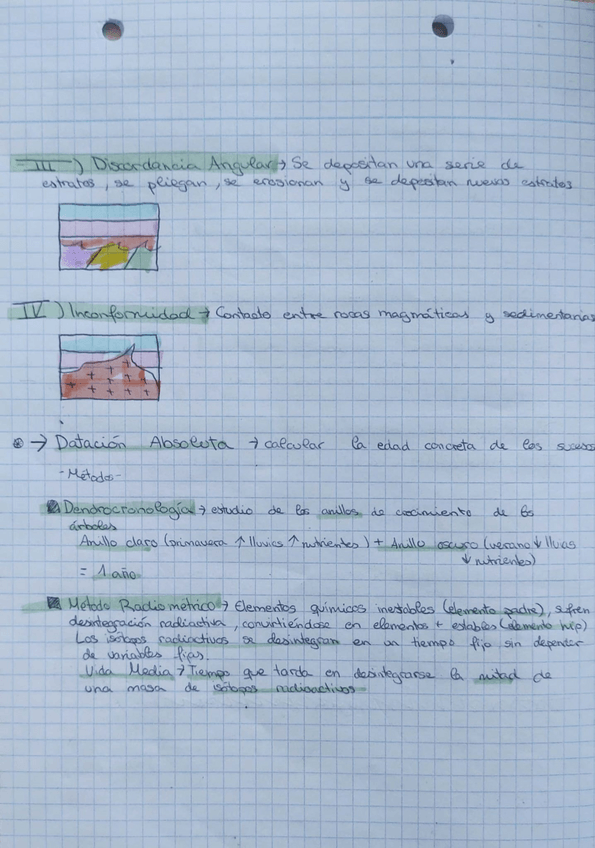 III) Discordancia Angular → Se depositan una serie de
estratos, se pliegan, se erosionan y se depositan nuevos estratos
IV) Inconformidad → Contacto entre rocas magmáticas y sedimentarias
→ Datación Absoluta → calcular la edad concreta de los sucesos
-Métodos-
Dendrocronología → estudio de los anillos de crecimiento de los
árboles
Anillo claro (primavera ↑ lluvias ↑ nutrientes) + Anillo oscuro (verano ↓ lluvias
↓ nutrientes)
= 1 año
Método Radiométrico → Elementos químicos inestables (elemento padre), sufren
desintegración radiactiva, convirtiéndose en elementos + estables (elemento hijo)
Los isótopos radiactivos se desintegran en un tiempo fijo sin depender
de variables fijas.
Vida Media → Tiempo que tarda en desintegrarse la mitad de
una masa de isótopos radioactivos